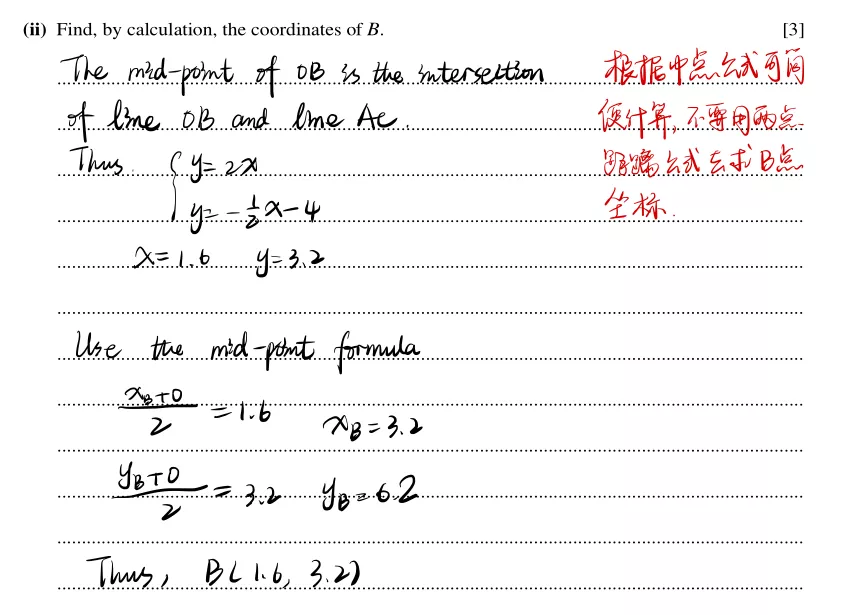 (ii) Find, by calculation, the coordinates of B. [3]
The mid-point of OB is the intersection
of line OB and line AC.
Thus { y = 2x
y = -1/2 x - 4
x = 1.6 y = 3.2
Use the mid-point formula
(x_B + 0)/2 = 1.6 x_B = 3.2
(y_B + 0)/2 = 3.2 y_B = 6.2
Thus, B(1.6, 3.2)
根据中点公式可简
便计算,不要用两点
距离公式去求B点
坐标.